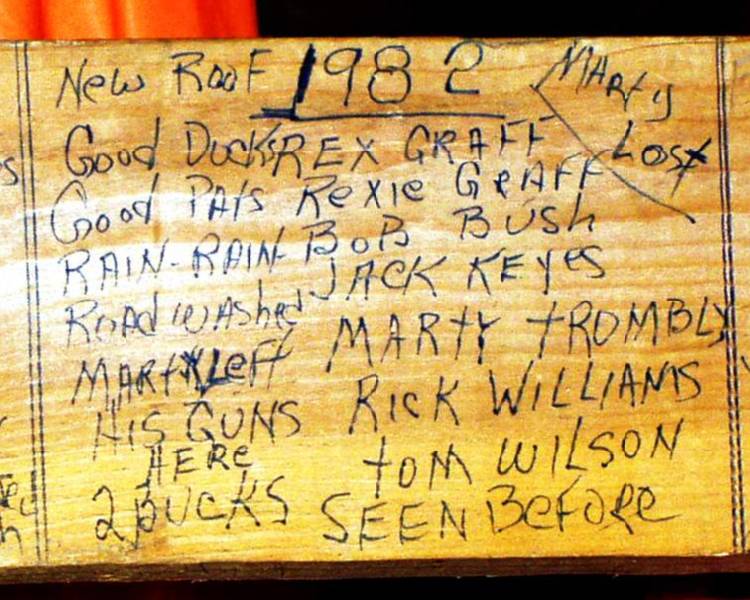 New Roof 1982 Marty
Lost
Good Ducks REX GRAFF
Good PAls Rexie GrAFF
RAIN-RAIN- BoB BUSh
ROAd wAshed JACK KEYes
MARty Left MARtY tROMBLY
HIS GUNS RICK WILLIAMS
HERe tOM WILSON
2 BUCKS SEEN BeFORe